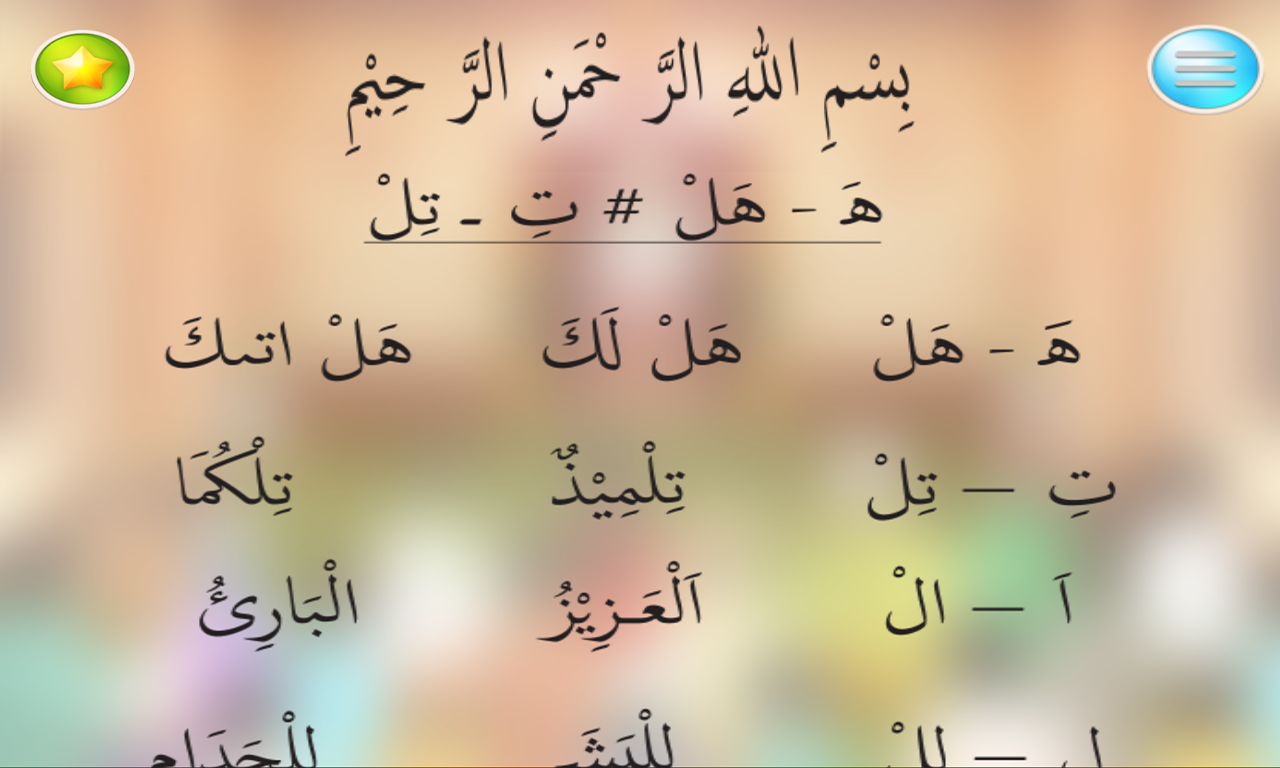 بِسْمِ اللّٰهِ الرَّ حْمَنِ الرَّ حِيْمِ
هَ - هَلْ # تِ - تِلْ
هَ - هَلْ هَلْ لَكَ هَلْ اتىكَ
تِ — تِلْ تِلْمِيْذٌ تِلْكُمَا
اَ — الْ اَلْعَزِيْزُ الْبَارِئُ